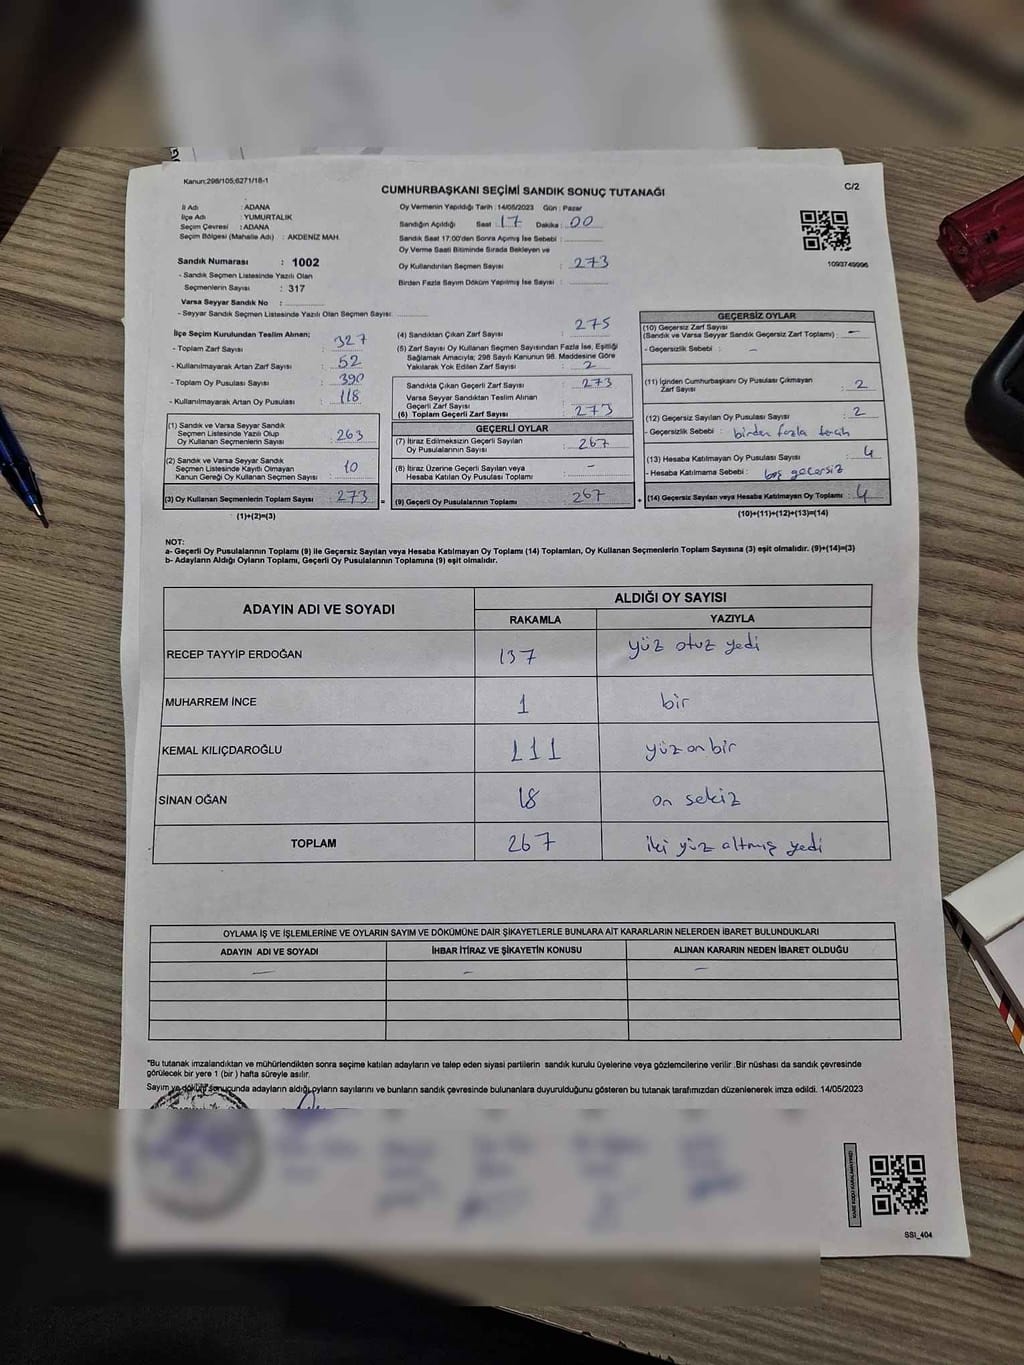 Kanun;298/105;6271/18-1
C/2
CUMHURBAŞKANI SEÇİMİ SANDIK SONUÇ TUTANAĞI
İl Adı : ADANA
İlçe Adı : YUMURTALIK
Seçim Çevresi : ADANA
Seçim Bölgesi (Mahalle Adı) : AKDENİZ MAH.
Sandık Numarası : 1002
- Sandık Seçmen Listesinde Yazılı Olan
Seçmenlerin Sayısı : 317
Varsa Seyyar Sandık No :
- Seyyar Sandık Seçmen Listesinde Yazılı Olan Seçmen Sayısı:
Oy Vermenin Yapıldığı Tarih : 14/05/2023 Gün : Pazar
Sandığın Açıldığı Saat : 17 Dakika : 00
Sandık Saat 17:00'den Sonra Açımış İse Sebebi :
Oy Verme Saati Bitiminde Sırada Bekleyen ve
Oy Kullandırılan Seçmen Sayısı : 273
Birden Fazla Sayım Döküm Yapılmış İse Sayısı :
1093749996
İlçe Seçim Kurulundan Teslim Alınan;
- Toplam Zarf Sayısı : 327
- Kullanılmayarak Artan Zarf Sayısı : 52
- Toplam Oy Pusulası Sayısı : 390
- Kullanılmayarak Artan Oy Pusulası : 118
(1) Sandık ve Varsa Seyyar Sandık
Seçmen Listesinde Yazılı Olup
Oy Kullanan Seçmenlerin Sayısı : 263
(2) Sandık ve Varsa Seyyar Sandık
Seçmen Listesinde Kayıtlı Olmayan
Kanun Gereği Oy Kullanan Seçmen Sayısı : 10
(3) Oy Kullanan Seçmenlerin Toplam Sayısı : 273 =
(1)+(2)=(3)
(4) Sandıktan Çıkan Zarf Sayısı : 275
(5) Zarf Sayısı Oy Kullanan Seçmen Sayısından Fazla İse, Eşitliği
Sağlamak Amacıyla; 298 Sayılı Kanunun 98. Maddesine Göre
Yakılarak Yok Edilen Zarf Sayısı : 2
Sandıkta Çıkan Geçerli Zarf Sayısı : 273
Varsa Seyyar Sandıktan Teslim Alınan
Geçerli Zarf Sayısı :
(6) Toplam Geçerli Zarf Sayısı : 273
GEÇERLİ OYLAR
(7) İtiraz Edilmeksizin Geçerli Sayılan
Oy Pusulasının Sayısı : 267
(8) İtiraz Üzerine Geçerli Sayılan veya
Hesaba Katılan Oy Pusulası Toplamı : -
(9) Geçerli Oy Pusulalarının Toplamı : 267 +
GEÇERSİZ OYLAR
(10) Geçersiz Zarf Sayısı
(Sandık ve Varsa Seyyar Sandık Geçersiz Zarf Toplamı) : -
- Geçersizlik Sebebi : -
(11) İçinden Cumhurbaşkanı Oy Pusulası Çıkmayan
Zarf Sayısı : 2
(12) Geçersiz Sayılan Oy Pusulası Sayısı : 2
- Geçersizlik Sebebi : birden fazla tercih
(13) Hesaba Katılmayan Oy Pusulası Sayısı : 4
- Hesaba Katılmama Sebebi : boş geçersiz
(14) Geçersiz Sayılan veya Hesaba Katılmayan Oy Toplamı : 4
(10)+(11)+(12)+(13)=(14)
NOT:
a- Geçerli Oy Pusulalarının Toplamı (9) ile Geçersiz Sayılan veya Hesaba Katılmayan Oy Toplamı (14) Toplamları, Oy Kullanan Seçmenlerin Toplam Sayısına (3) eşit olmalıdır. (9)+(14)=(3)
b- Adayların Aldığı Oyların Toplamı, Geçerli Oy Pusulalarının Toplamına (9) eşit olmalıdır.
ADAYIN ADI VE SOYADI
ALDIĞI OY SAYISI
RAKAMLA YAZIYLA
RECEP TAYYİP ERDOĞAN 137 yüz otuz yedi
MUHARREM İNCE 1 bir
KEMAL KILIÇDAROĞLU 111 yüz on bir
SİNAN OĞAN 18 on sekiz
TOPLAM 267 iki yüz altmış yedi
OYLAMA İŞ VE İŞLEMLERİNE VE OYLARIN SAYIM VE DÖKÜMÜNE DAİR ŞİKAYETLERLE BUNLARA AİT KARARLARIN NELERDEN İBARET BULUNDUKLARI
ADAYIN ADI VE SOYADI İHBAR İTİRAZ VE ŞİKAYETİN KONUSU ALINAN KARARIN NEDEN İBARET OLDUĞU
- - -
*Bu tutanak imzalandıktan ve mühürlendikten sonra seçime katılan adayların ve talep eden siyasi partilerin sandık kurulu üyelerine veya gözlemcilerine verilir .Bir nüshası da sandık çevresinde
görülecek bir yere 1 (bir ) hafta süreyle asılır.
Sayım ve döküm sonucunda adayların aldığı oyların sayılarını ve bunların sandık çevresinde bulunanlara duyurulduğunu gösteren bu tutanak tarafımızdan düzenlenerek imza edildi. 14/05/2023
SSI_404